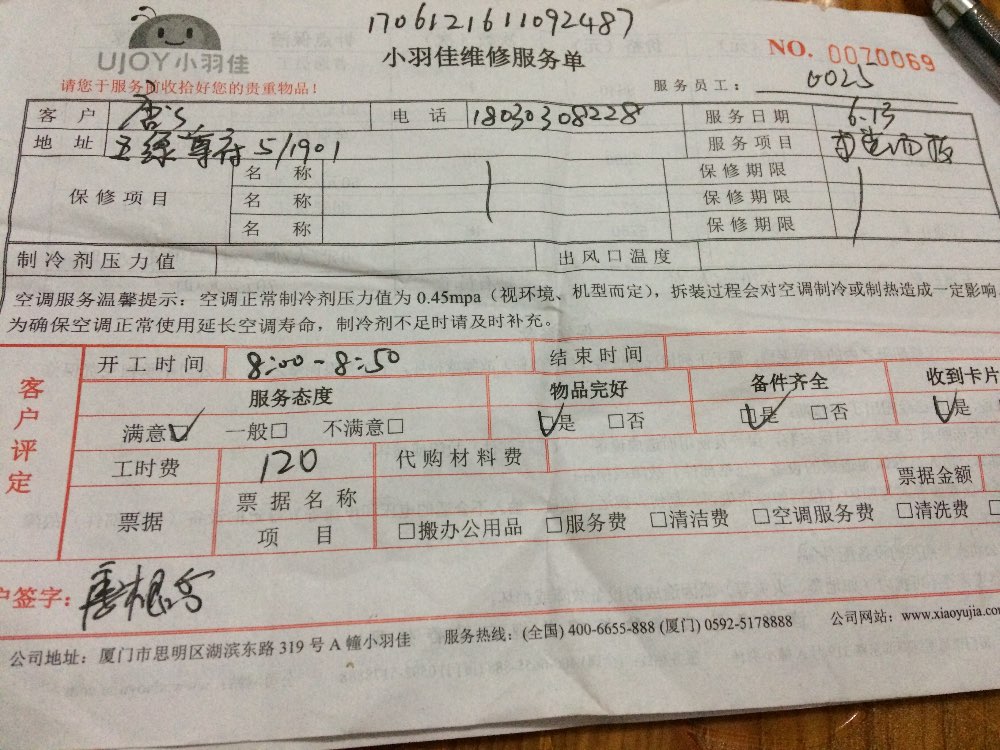 1706121611092487
UJOY小羽佳
小羽佳维修服务单
NO. 0070069
请您于服务前收拾好您的贵重物品!
服务员工: 0025
客户 唐S 电话 18030308228 服务日期 6.13
地址 五缘尊府 5/1901 服务项目
保修项目 名称 保修期限
名称 保修期限
名称 保修期限
制冷剂压力值 出风口温度
空调服务温馨提示:空调正常制冷剂压力值为 0.45mpa(视环境、机型而定),拆装过程会对空调制冷或制热造成一定影响
为确保空调正常使用延长空调寿命,制冷剂不足时请及时补充。
客户评定
开工时间 8:00-8:50 结束时间
服务态度 物品完好 备件齐全 收到卡片
满意☑ 一般□ 不满意□ ☑是 □否 ☑是 □否 ☑是
工时费 120 代购材料费
票据 票据名称 票据金额
项目 □搬办公用品 □服务费 □清洁费 □空调服务费 □清洗费 □
户签字:
公司地址:厦门市思明区湖滨东路 319 号 A 幢小羽佳 服务热线:(全国) 400-6655-888 (厦门) 0592-5178888 公司网站:www.xiaoyujia.com